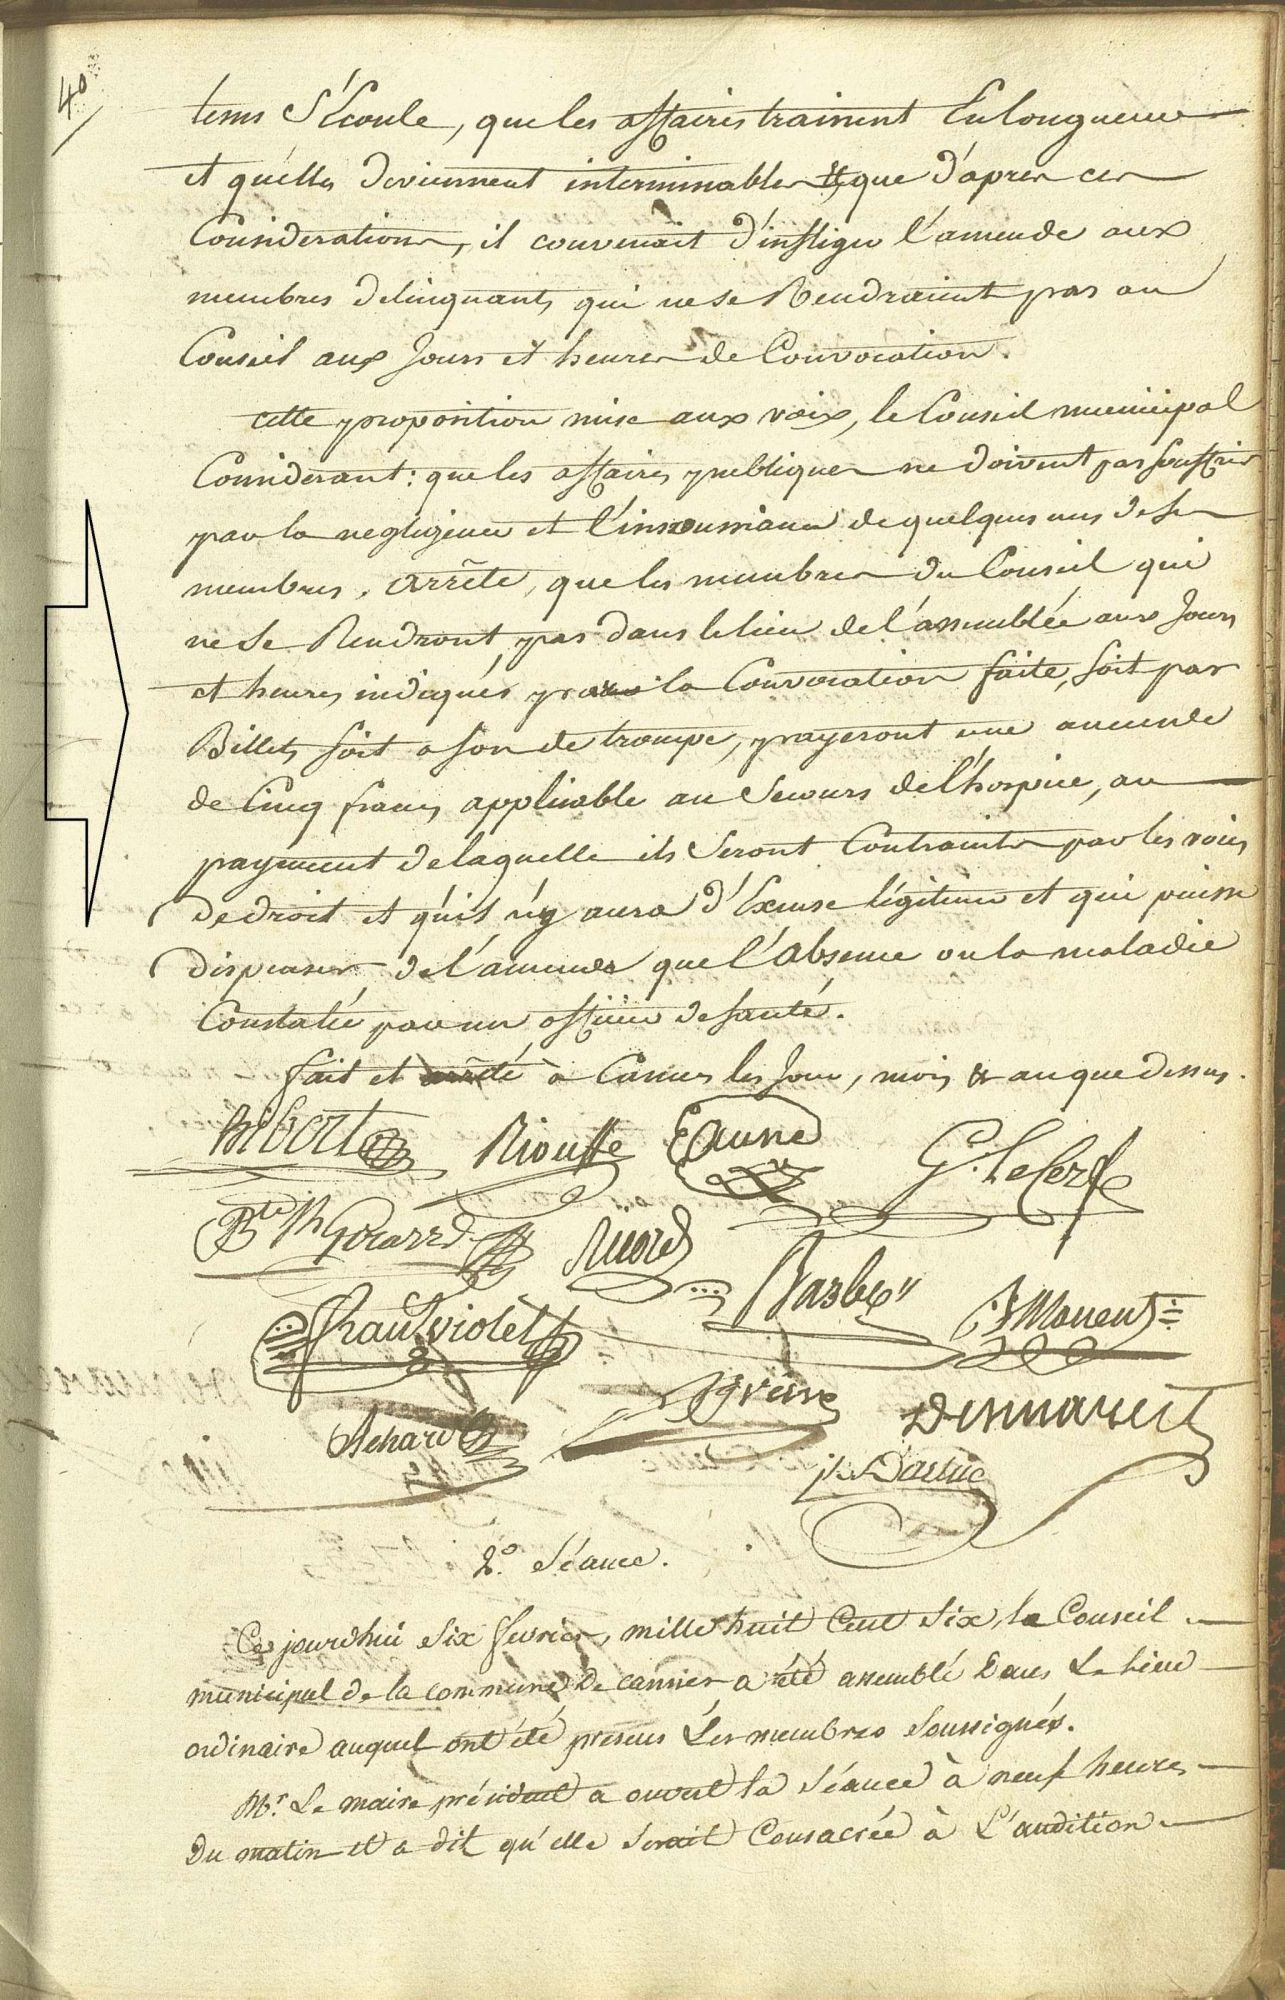 40
tems s'Ecoule, que les affaires trainent En longueur
et qu'elles deviennent interminables et que d'après ces
Considerations, il convenait d'infliger l'amende aux
membres delinquants qui ne se Rendraient pas au
Conseil aux Jours et heures de Convocation.
cette proposition mise aux voix, le Conseil municipal
Considerant: que les affaires publiques ne doivent pas souffrir
par la negligence et l'insousiance de quelques uns de ses
membres. arrête, que les membres du Conseil qui
ne se Rendront pas dans le lieu de l'assemblée aux Jours
et heures indiqués par la Convocation faite, soit par
Billets soit a son de trompe, payeront une amende
de Cinq francs applicable au Secours de l'hospice, au
payement de laquelle ils seront Contraints par les voies
de droit et qu'il n'y aura d'Excuse légitime et qui puisse
dispenser de l'amende que l'absence ou la maladie
Constatée par un officier de santé.
fait et arrêté à Cannes les Jour, mois & an que dessus.
Hibert Riouffe Eaune G. LeCerf
Girard Ricord Barbe
J Mouent
Jean Violet
Achard Preire
2.e Séance.
Ce jourdhui six fevrier, mille huit Cent Six, le Conseil
municipal de la commune De cannes a été assemblé Dans Le Lieu
ordinaire auquel ont été presens Les membres Soussignés.
Mr. Le maire président a ouvert la Séance à neuf heures
Du matin et a dit qu'elle serait Consacrée à L'audition